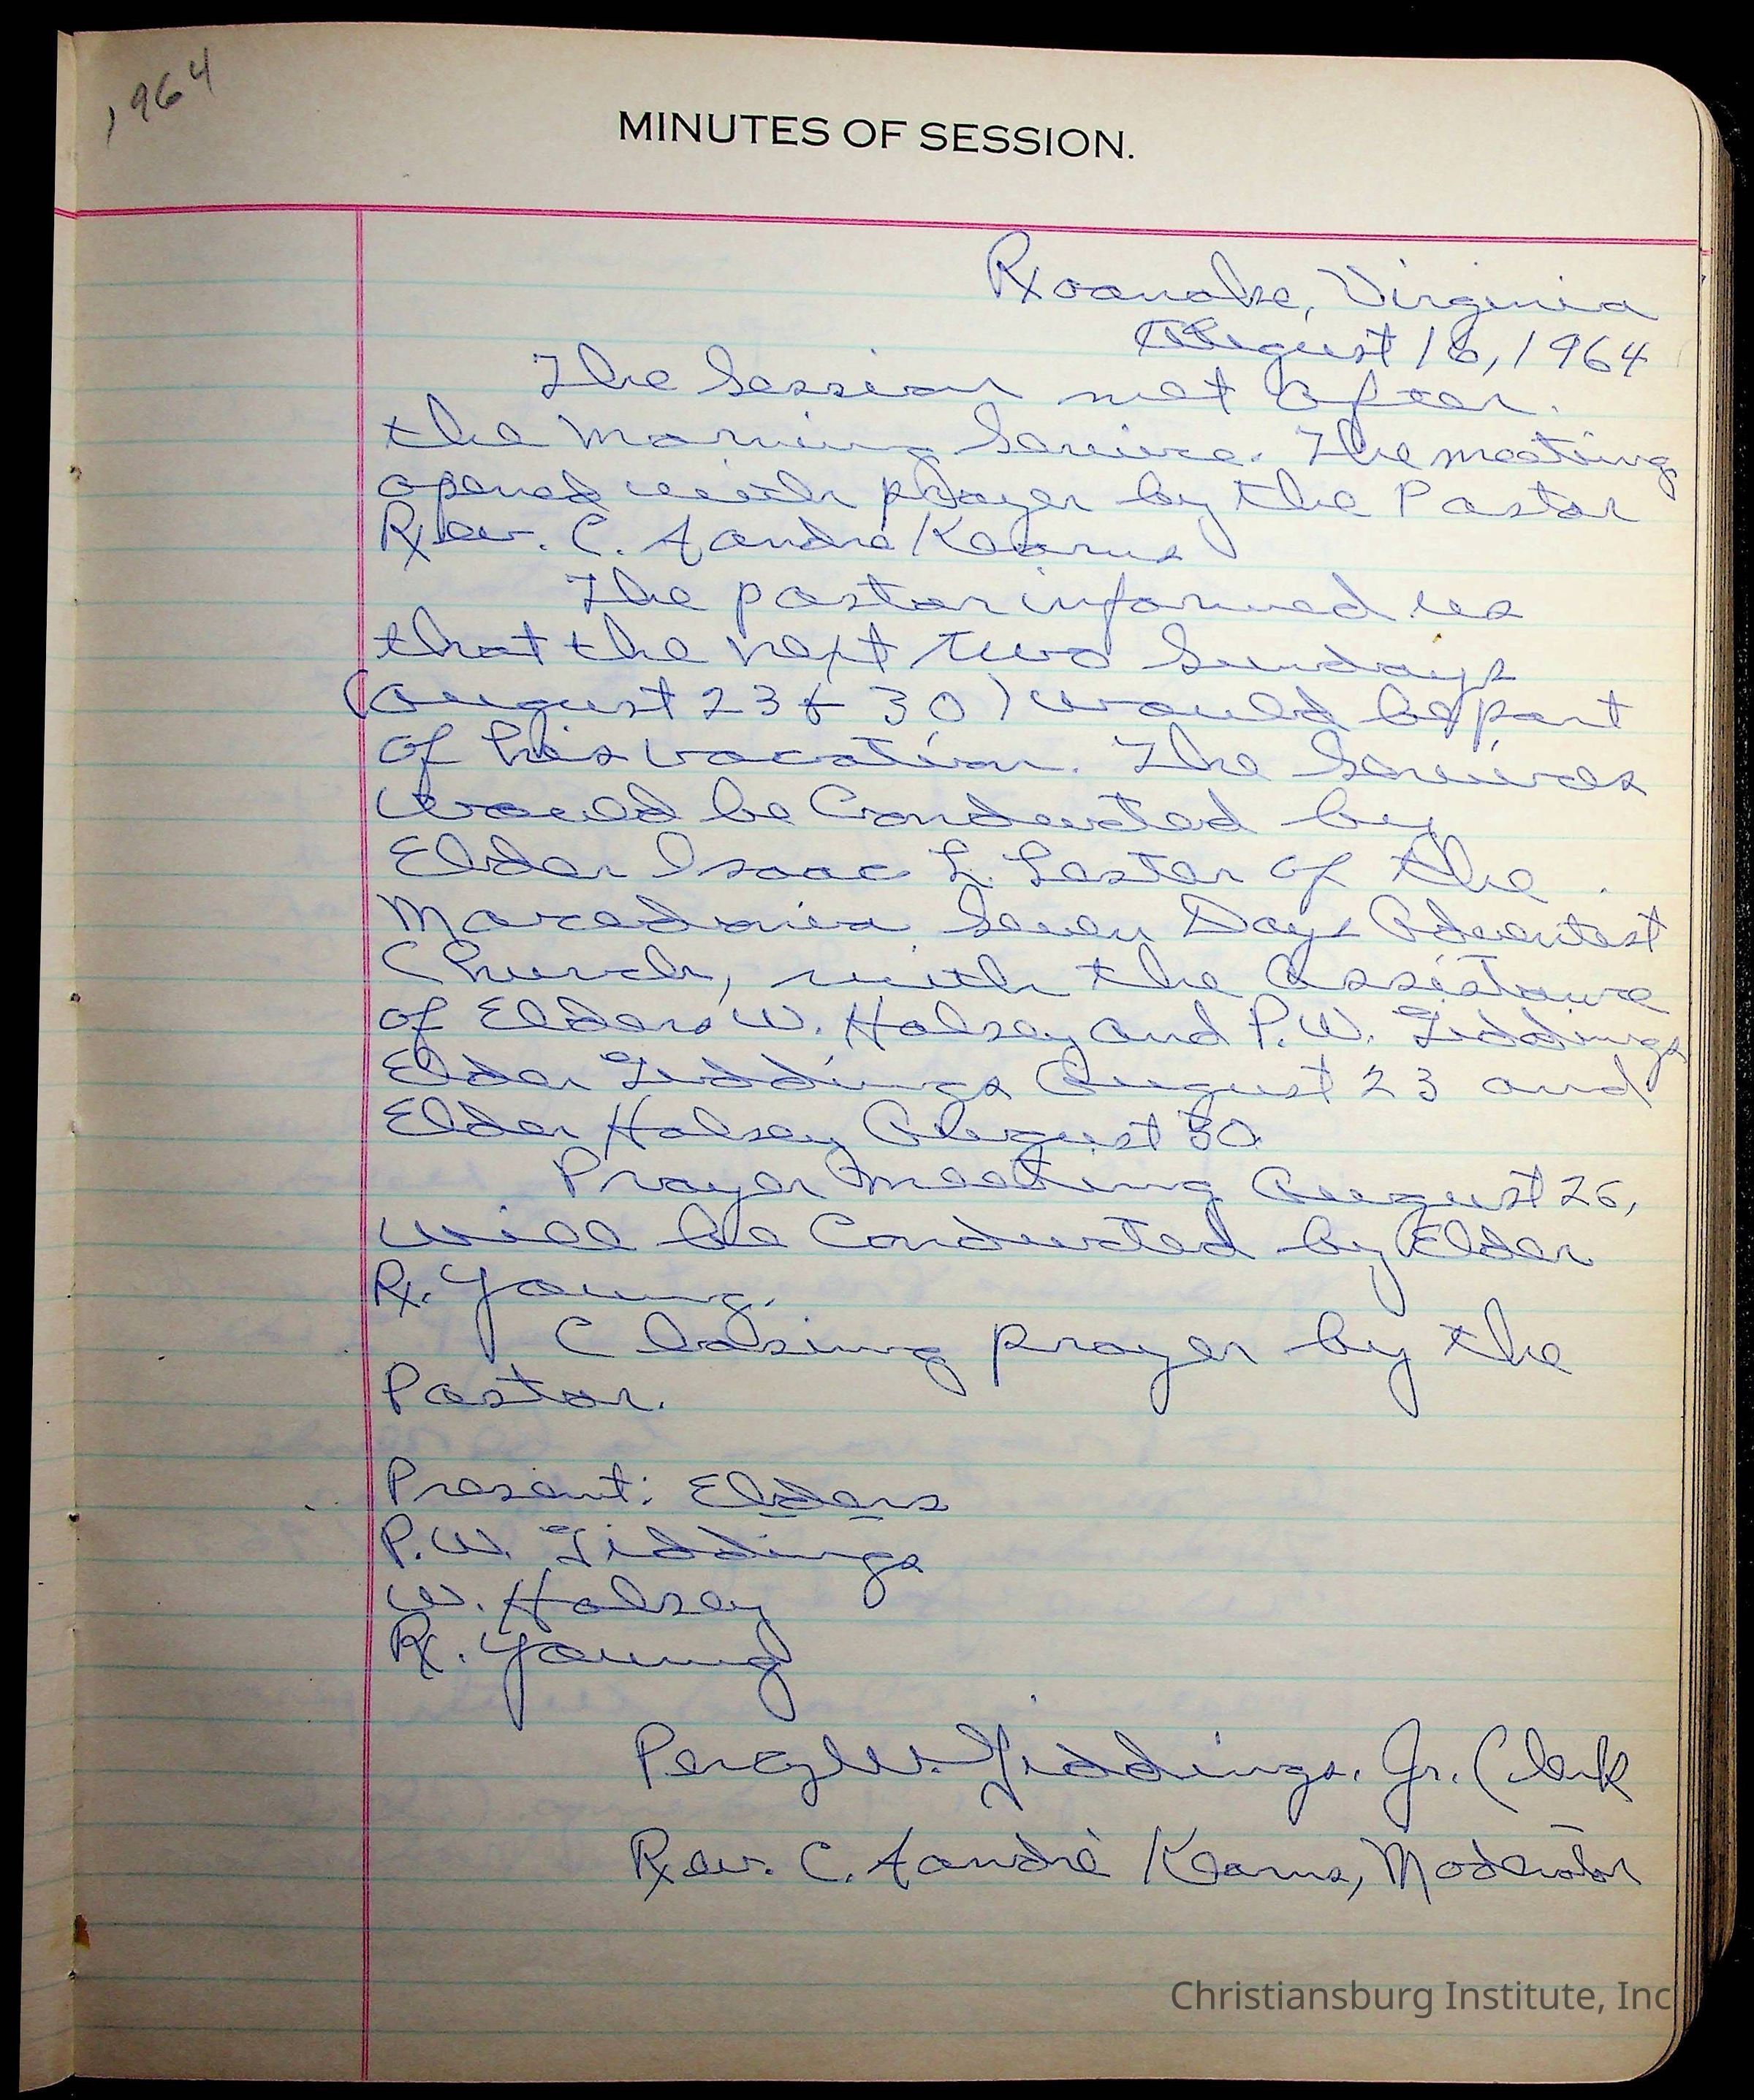 1964
MINUTES OF SESSION.
Roanoke, Virginia
August 16, 1964
The Session met after
the Morning Service. The meeting
opened with prayer by the Pastor
Rev. C. Aandre Kearns
The pastor informed us
that the next two Sundays
(August 23 & 30) would be part
of his vacation. The Services
would be Conducted by
Elder Isaac L. Lester of the
Macedonia Seven Days Adventest
Church, with the assistance
of Elders W. Halsey and P.W. Giddings
Elder Giddings August 23 and
Elder Halsey August 30
Prayer Meeting August 26,
will be Conducted by Elder
R. Young.
Closing prayer by the
Pastor.
Present: Elders
P.W. Giddings
W. Halsey
R. Young
Percy W. Giddings, Jr. Clerk
Rev. C. Aandré Kearns, Moderator
Christiansburg Institute, Inc